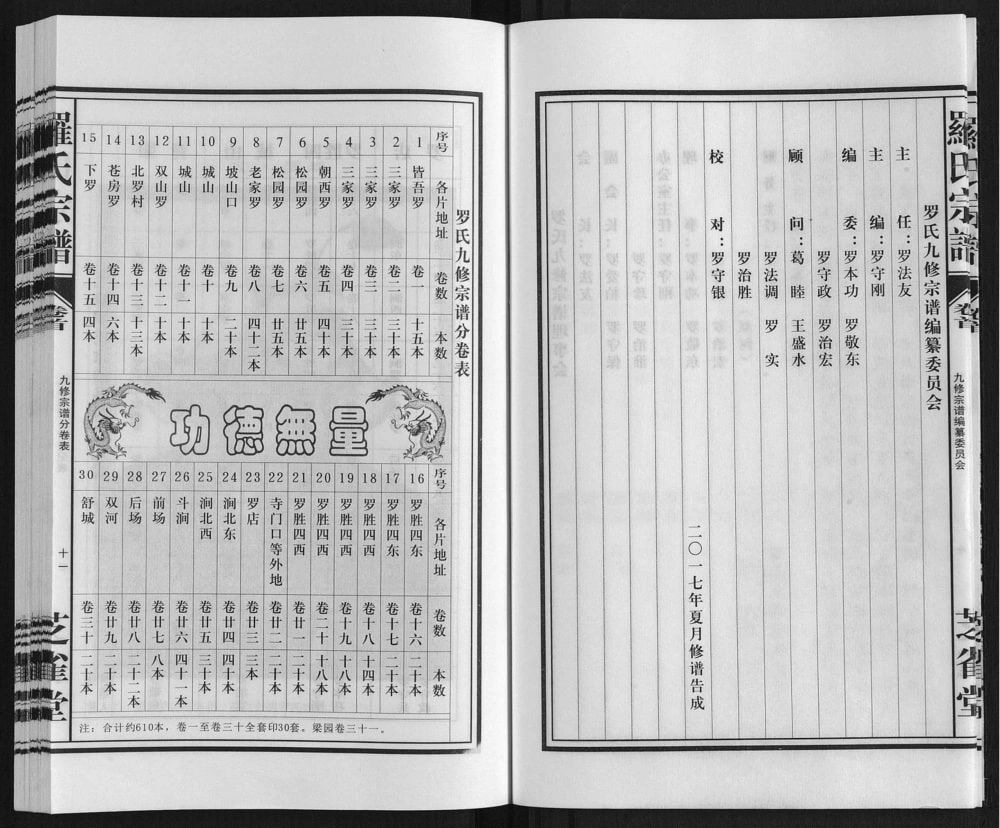 羅氏宗譜
卷首
九修宗谱编纂委员会
罗氏九修宗谱编纂委员会
主任：罗法友
主编：罗守刚
编委：罗本功 罗敬东
罗守政 罗治宏
顾问：葛睦 王盛水
罗法调 罗实
罗治胜
校对：罗守银
二〇一七年夏月修谱告成
罗氏九修宗谱分卷表
序号 各片地址 卷数 本数
1 皆吾罗 卷一 十五本
2 三家罗 卷二 三十本
3 三家罗 卷三 二十本
4 三家罗 卷四 三十本
5 朝西罗 卷五 四十本
6 松园罗 卷六 廿五本
7 松园罗 卷七 廿五本
8 老家罗 卷八 四十二本
9 坡山口 卷九 二十本
10 城山 卷十 十本
11 城山 卷十一 十本
12 双山罗 卷十二 十本
13 北罗村 卷十三 十三本
14 苍房罗 卷十四 六本
15 下罗 卷十五 四本
功德無量
序号 各片地址 卷数 本数
16 罗胜四东 卷十六 二十本
17 罗胜四东 卷十七 二十本
18 罗胜四西 卷十八 十四本
19 罗胜四西 卷十九 十八本
20 罗胜四西 卷二十 十八本
21 罗胜四西 卷廿一 二十本
22 寺门口等外地 卷廿二 二十本
23 罗店 卷廿三 二十本
24 涧北东 卷廿四 四十本
25 涧北西 卷廿五 三十本
26 斗涧 卷廿六 四十一本
27 前场 卷廿七 八本
28 后场 卷廿八 二十二本
29 双河 卷廿九 二十本
30 舒城 卷三十 二十本
注：合计约610本，卷一至卷三十全套印30套。梁园卷三十一。
羅氏宗譜
卷首
九修宗谱分卷表
十一